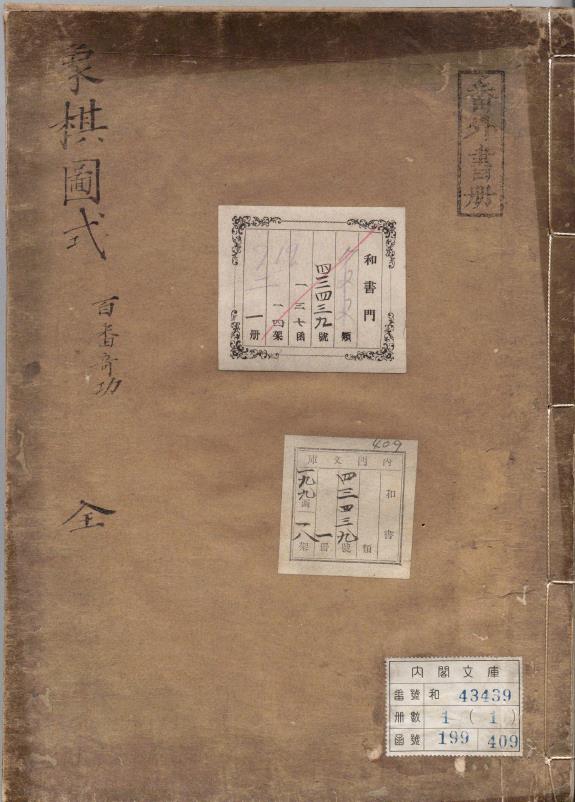 象棋圖式
百番奇功
全
番外書冊
和書門
類
四三四三九號
一三七函
一四架
一册
409
内閣文庫
和書
類
四三四三九號
一冊
一九九函
一八架
内閣文庫
番號 和 43439
册數 1 ( 1 )
函號 199 409